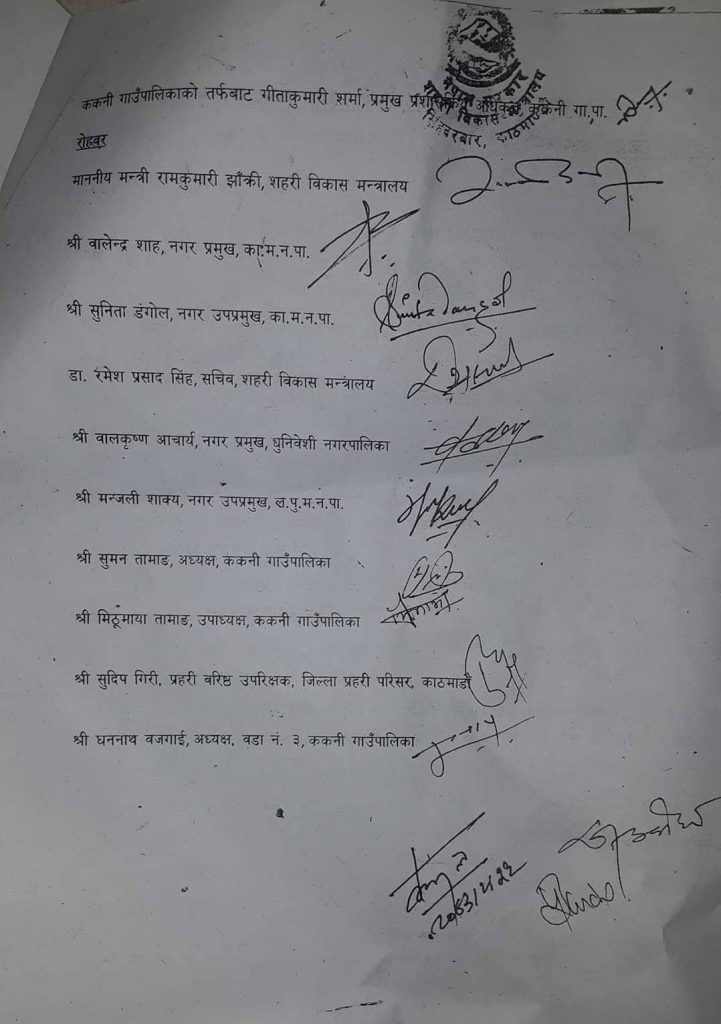 नेपाल सरकार
विकास मन्त्रालय
सिंहदरबार, काठमाडौं
ककनी गाउँपालिकाको तर्फबाट गीताकुमारी शर्मा, प्रमुख प्रशासकीय अधिकृत, ककनी गा.पा.
रोहवर
माननीय मन्त्री रामकुमारी झाँक्री, शहरी विकास मन्त्रालय
श्री वालेन्द्र शाह, नगर प्रमुख, का.म.न.पा.
श्री सुनिता डंगोल, नगर उपप्रमुख, का.म.न.पा.
Sunita Dangol
डा. रमेश प्रसाद सिंह, सचिव, शहरी विकास मन्त्रालय
श्री वालकृष्ण आचार्य, नगर प्रमुख, धुनिवेशी नगरपालिका
श्री मन्जली शाक्य, नगर उपप्रमुख, ल.पु.म.न.पा.
श्री सुमन तामाङ, अध्यक्ष, ककनी गाउँपालिका
श्री मिठूमाया तामाङ, उपाध्यक्ष, ककनी गाउँपालिका
श्री सुदिप गिरी, प्रहरी वरिष्ठ उपरिक्षक, जिल्ला प्रहरी परिसर, काठमाडौं
श्री घननाथ वजगाई, अध्यक्ष, वडा नं. ३, ककनी गाउँपालिका